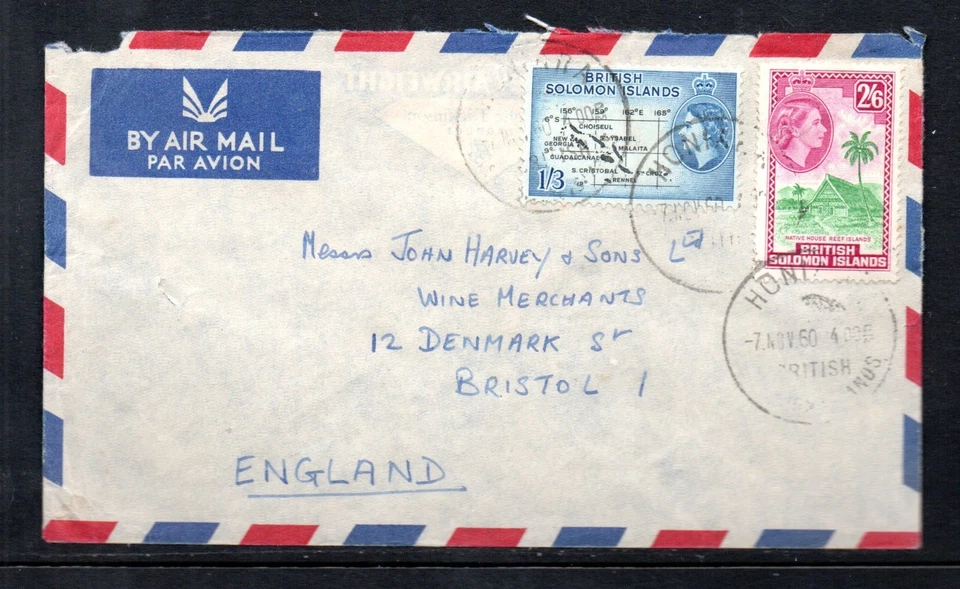 BY AIR MAIL
PAR AVION
BRITISH
SOLOMON ISLANDS
156° 159° 162°E 165°
6°S
CHOISEUL
NEW GEORGIA
YSABEL
MALAITA
GUADALCANAL
S. CRISTOBAL
STA CRUZ
RENNEL
1/3
2/6
NATIVE HOUSE REEF ISLANDS
BRITISH
SOLOMON ISLANDS
Messrs JOHN HARVEY & SONS Ltd
WINE MERCHANTS
12 DENMARK St
BRISTOL 1
ENGLAND
-7.NOV.60 4.00
BRITISH